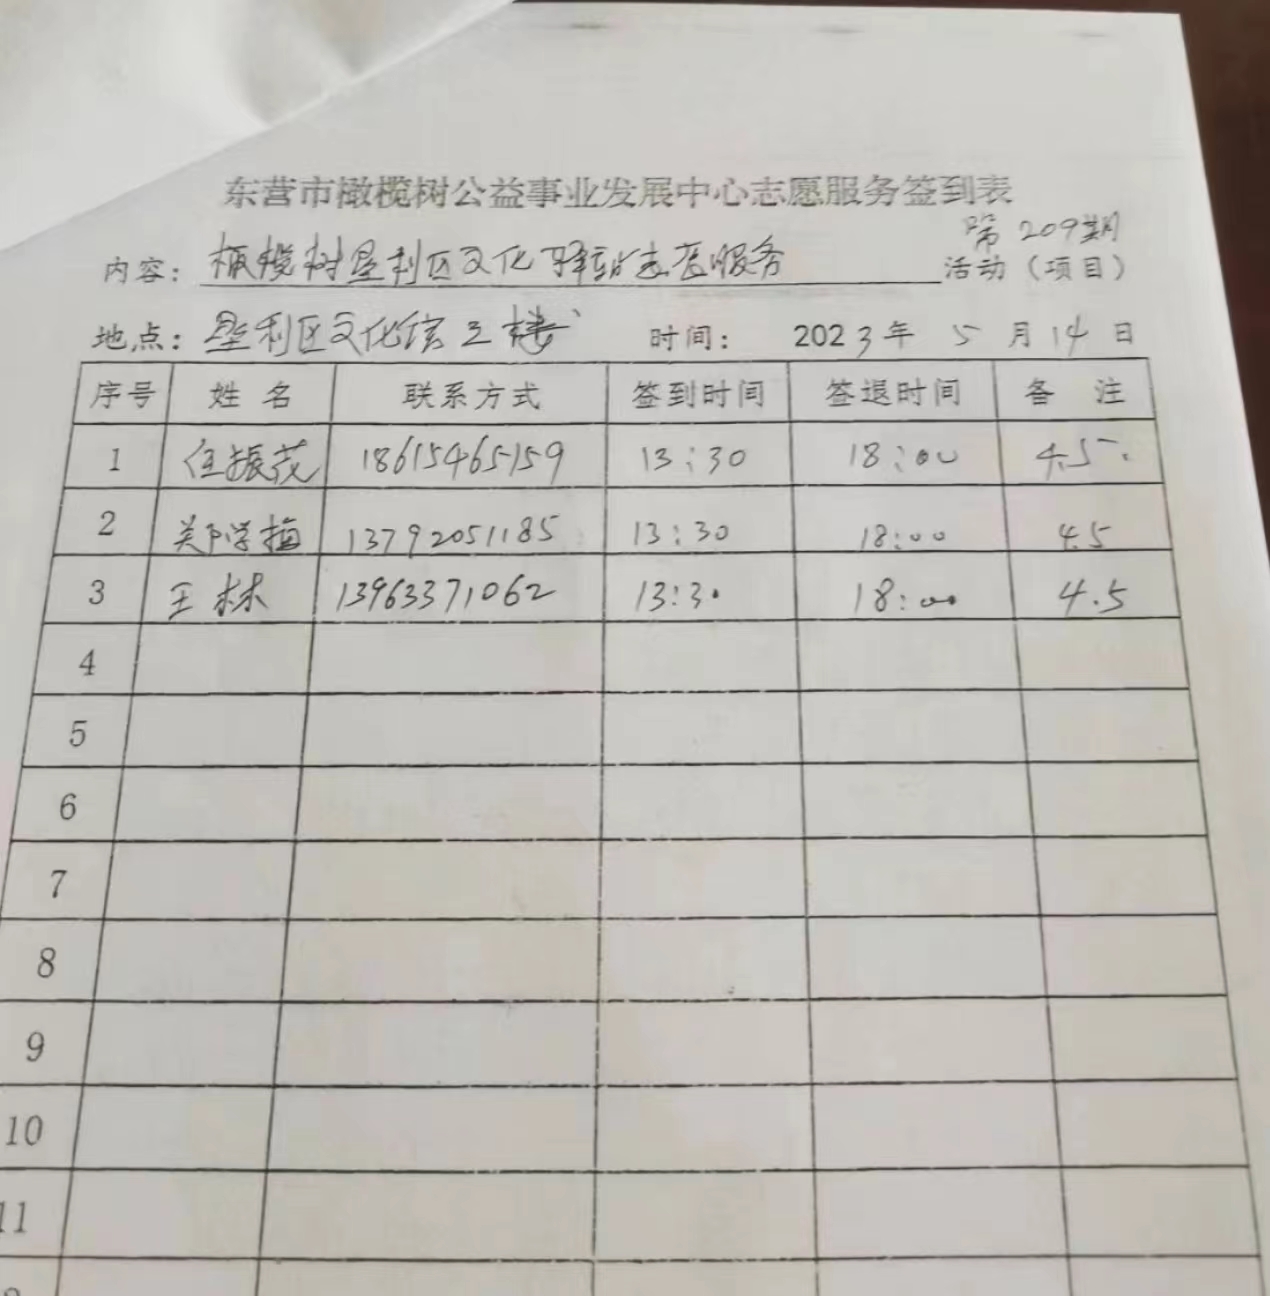 东营市橄榄树公益事业发展中心志愿服务签到表
第209期
内容：橄榄树垦利区文化驿站志愿服务 活动（项目）
地点：垦利区文化馆三楼 时间： 2023年 5 月 14 日
序号 姓 名 联系方式 签到时间 签退时间 备 注
1 任振茂 18615465159 13:30 18:00 4.5
2 学梅 13792051185 13:30 18:00 4.5
3 王林 13963371062 13:30 18:00 4.5
4
5
6
7
8
9
10
11